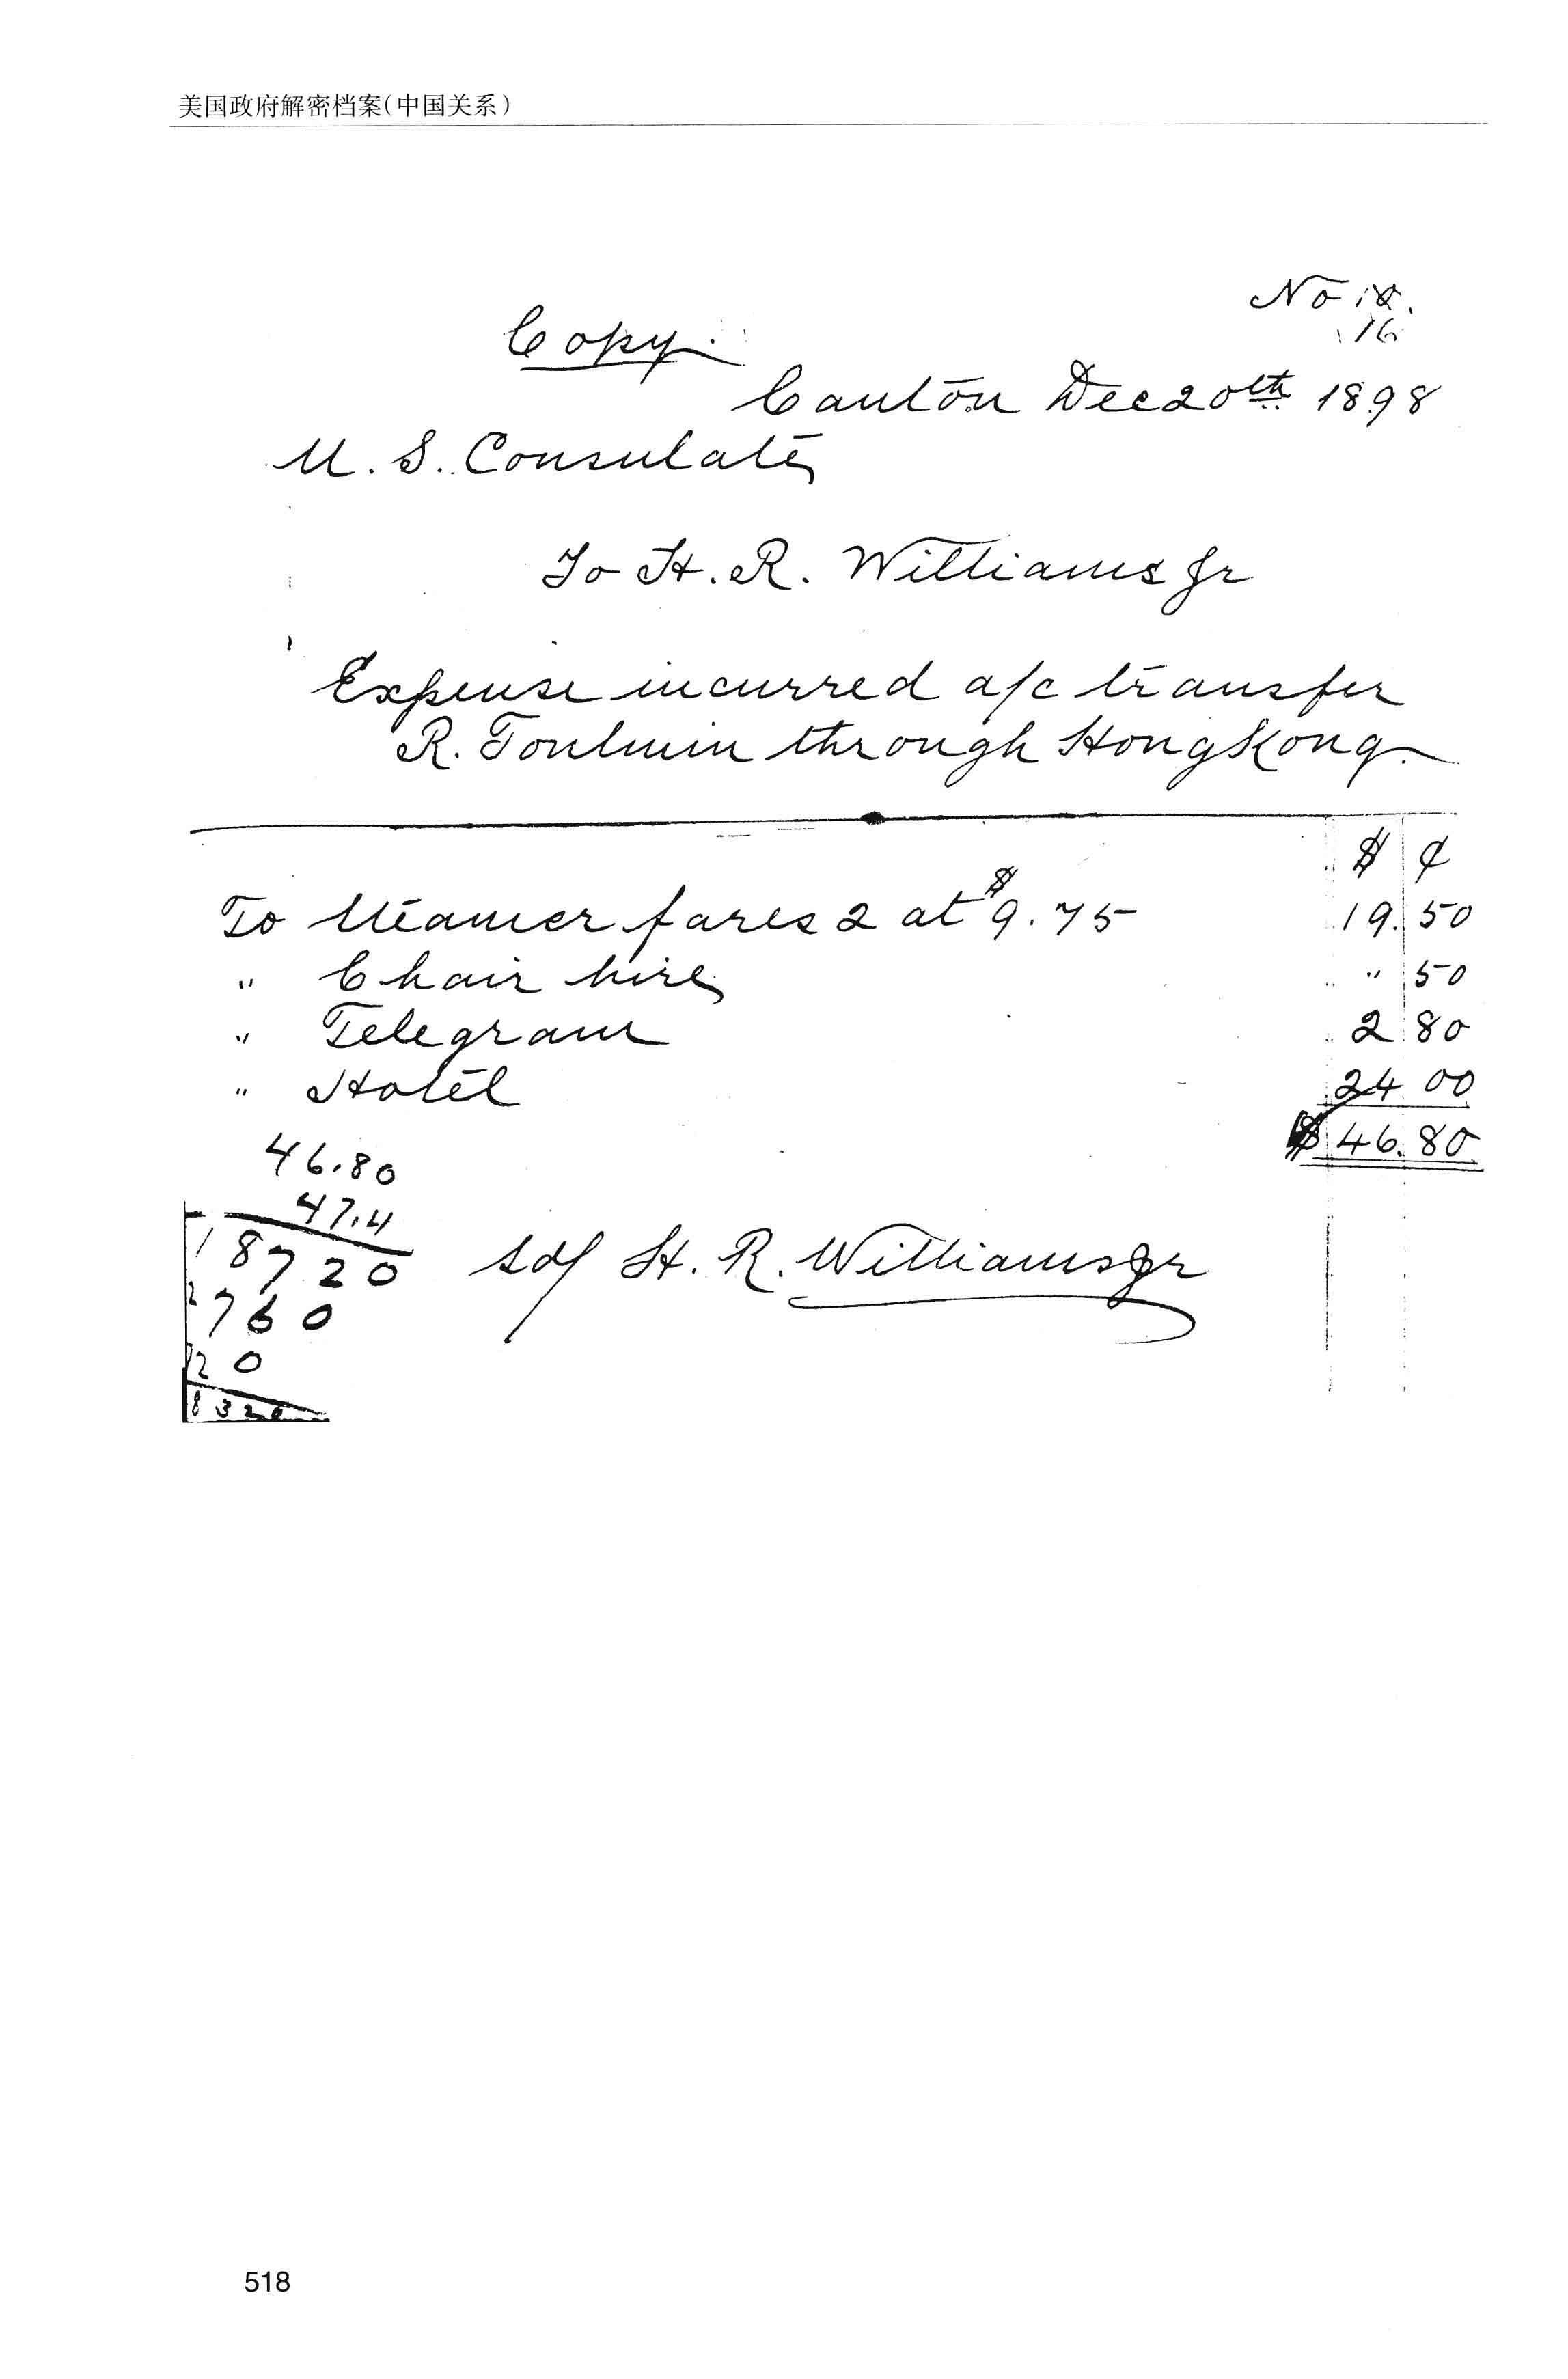 美国政府解密档案(中国关系)
No
16
Copy.
Canton Dec 20th 1898
U. S. Consulate,
To H. R. Williams Jr
Expense incurred a/c transfer
R. Toulmin through HongKong.
$ ¢
To Steamer fares 2 at $9.75 19.50
" Chair hire, " 50
" Telegram 2 80
" Hotel 24 00
$ 46.80
46.80
47.4
18720
2760
20
832
sd/ H. R. Williams Jr
518